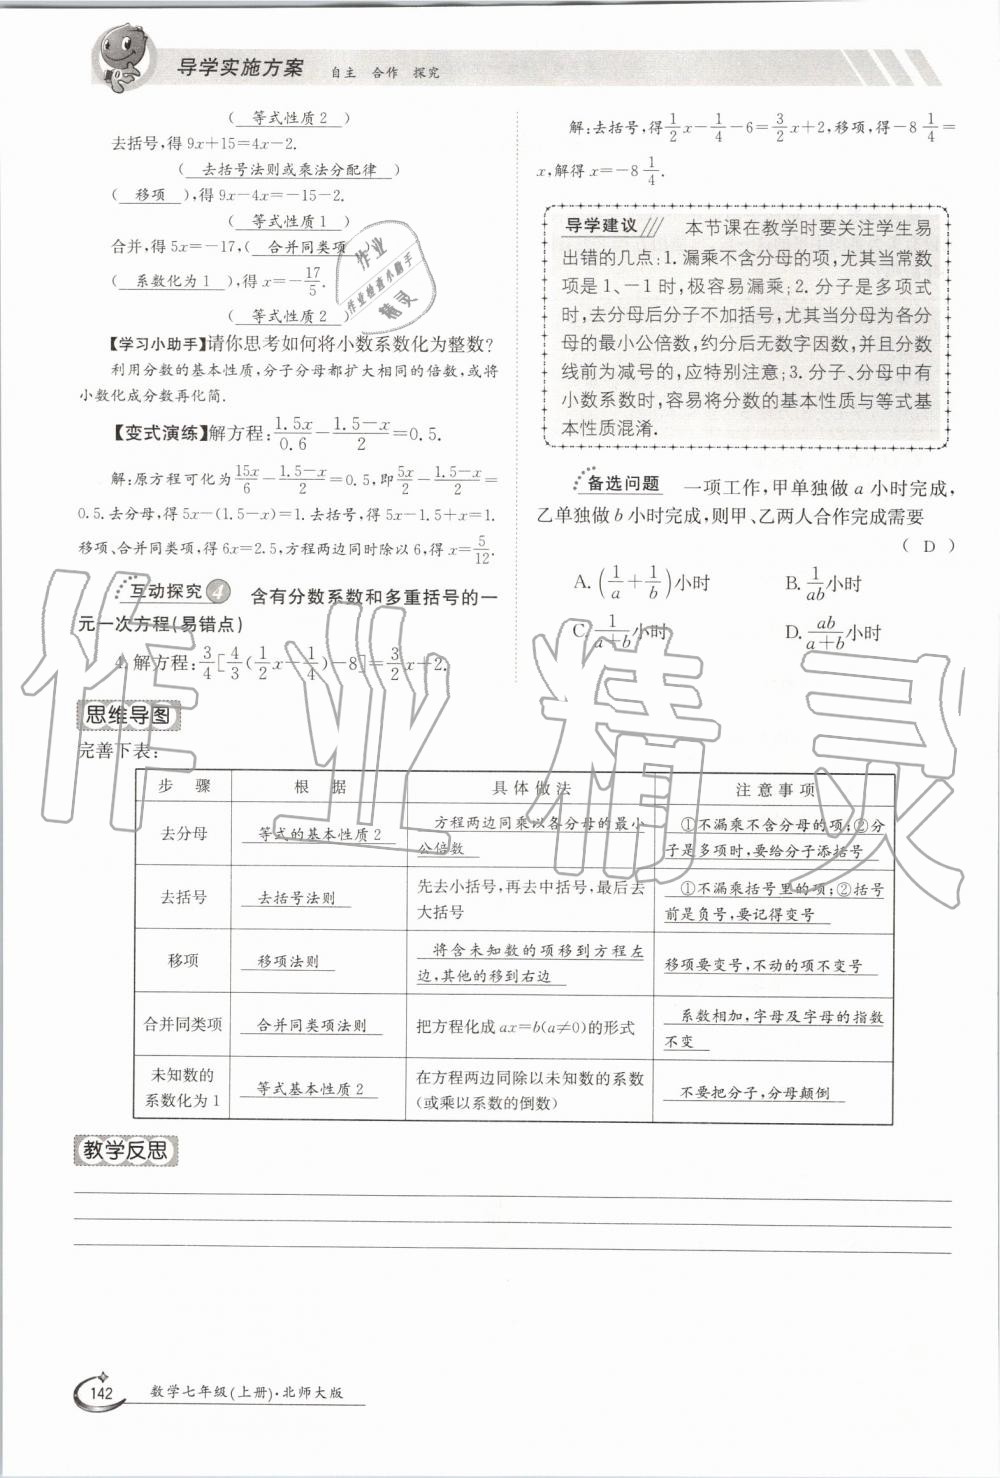 导学实施方案 自主 合作 探究
( 等式性质2 )
去括号,得9x+15=4x-2.
( 去括号法则或乘法分配律 )
( 移项 ),得9x-4x=-15-2.
( 等式性质1 )
合并,得5x=-17,( 合并同类项
( 系数化为1 ),得x=-17/5.
( 等式性质2 )
【学习小助手】请你思考如何将小数系数化为整数?
利用分数的基本性质,分子分母都扩大相同的倍数,或将
小数化成分数再化简.
【变式演练】解方程:1.5x/0.6-(1.5-x)/2=0.5.
解:原方程可化为15x/6-(1.5-x)/2=0.5,即5x/2-(1.5-x)/2=
0.5.去分母,得5x-(1.5-x)=1.去括号,得5x-1.5+x=1.
移项、合并同类项,得6x=2.5,方程两边同时除以6,得x=5/12.
互动探究4 含有分数系数和多重括号的一
元一次方程(易错点)
4.解方程:3/4[4/3(1/2x-1/4)-8]=3/2x+2.
解:去括号,得1/2x-1/4-6=3/2x+2,移项,得-8 1/4=
x,解得x=-8 1/4.
导学建议 本节课在教学时要关注学生易
出错的几点:1.漏乘不含分母的项,尤其当常数
项是1、-1时,极容易漏乘;2.分子是多项式
时,去分母后分子不加括号,尤其当分母为各分
母的最小公倍数,约分后无数字因数,并且分数
线前为减号的,应特别注意;3.分子、分母中有
小数系数时,容易将分数的基本性质与等式基
本性质混淆.
备选问题 一项工作,甲单独做a小时完成,
乙单独做b小时完成,则甲、乙两人合作完成需要
( D )
A.(1/a+1/b)小时 B.1/ab小时
C.1/(a+b)小时 D.ab/(a+b)小时
思维导图
完善下表:
步骤 根据 具体做法 注意事项
去分母 等式的基本性质2 方程两边同乘以各分母的最小
公倍数 ①不漏乘不含分母的项;②分
子是多项时,要给分子添括号
去括号 去括号法则 先去小括号,再去中括号,最后去
大括号 ①不漏乘括号里的项;②括号
前是负号,要记得变号
移项 移项法则 将含未知数的项移到方程左
边,其他的移到右边 移项要变号,不动的项不变号
合并同类项 合并同类项法则 把方程化成ax=b(a≠0)的形式 系数相加,字母及字母的指数
不变
未知数的
系数化为1 等式基本性质2 在方程两边同除以未知数的系数
(或乘以系数的倒数) 不要把分子,分母颠倒
教学反思
142 数学七年级(上册)·北师大版
作业精灵
作业
作业检查小助手
精灵